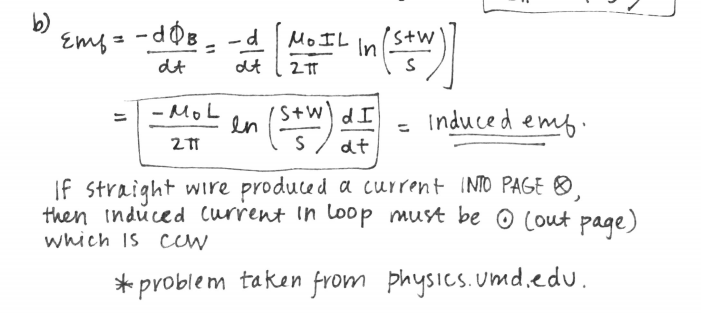 b) Emf = -dΦB/dt = -d/dt [ MoIL/2π ln (S+W/S) ]
= -MoL/2π ln (S+W/S) dI/dt = induced emf.
If straight wire produced a current INTO PAGE ⊗,
then induced current in loop must be ⊙ (out page)
which is ccw
* problem taken from physics.umd.edu.